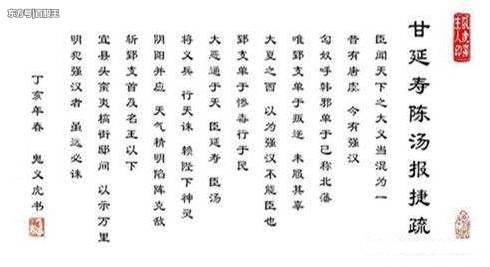 甘延寿陈汤报捷疏
臣闻天下之大义当混为一
昔有唐虞 今有强汉
匈奴呼韩邪单于已称北藩
唯郅支单于叛逆 未服其辜
大夏之西 以为强汉不能臣也
郅支单于惨毒行于民
大恶通于天 臣延寿 臣汤
将义兵 行天诛 赖陛下神灵
阴阳并应 天气精明陷阵克敌
斩郅支首及名王以下
宜县头蛮夷槁街邸间 以示万里
明犯强汉者 虽远必诛
丁亥年春 鬼义虎书